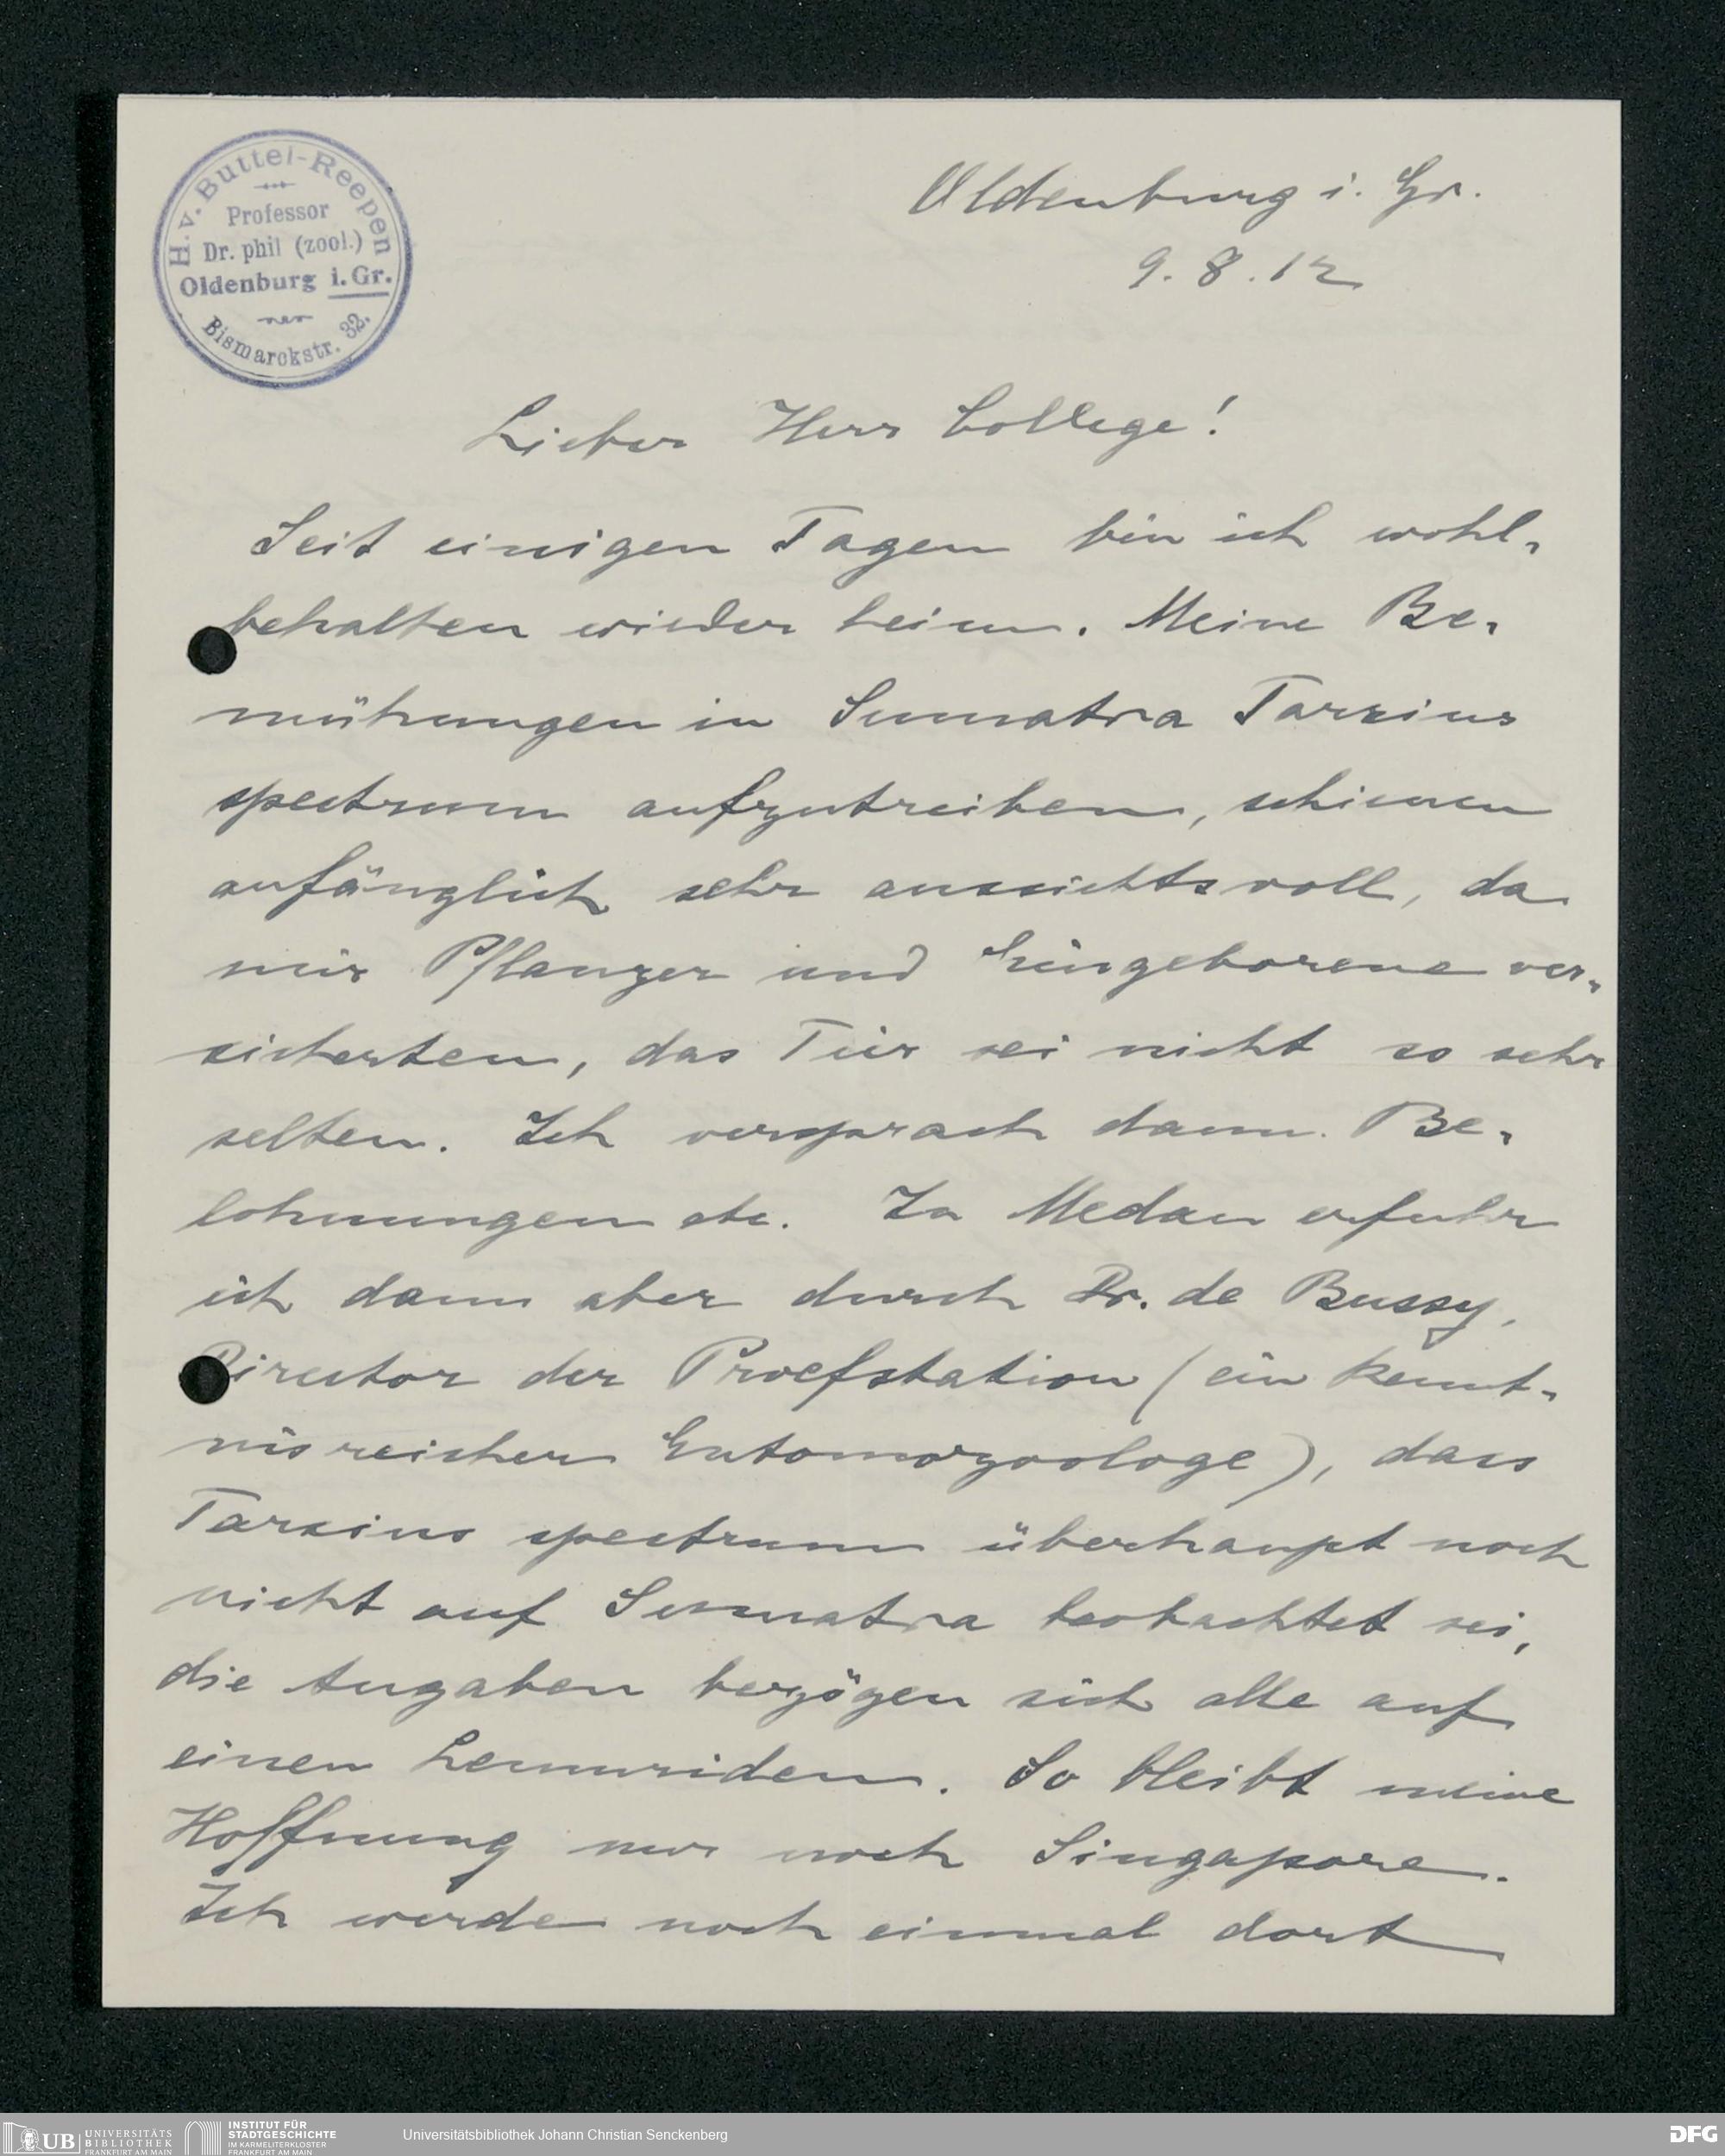 H. v. Buttel-Reepen
Professor
Dr. phil (zool.)
Oldenburg i. Gr.
Bismarckstr. 32.
Oldenburg i. Gr.
9. 8. 12
Lieber Herr College!
Seit einigen Tagen bin ich wohl-
behalten wieder heim. Meine Be-
mühungen in Sumatra Tarsius
spectrum aufzutreiben, schienen
anfänglich sehr aussichtsvoll, da
mir Pflanzer und Eingeborene ver-
sicherten, das Tier sei nicht so sehr
selten. Ich versprach dann Be-
lohnungen etc. In Medan erfuhr
ich dann aber durch Dr. de Bussy,
Director der Proefstation (ein kennt-
nisreicher Entomozoologe), dass
Tarsius spectrum überhaupt noch
nicht auf Sumatra beobachtet sei,
die Angaben bezögen sich alle auf
einen Lemuriden. So bleibt meine
Hoffnung nur noch Singapore.
Ich werde noch einmal dort
UB UNIVERSITÄTS
BIBLIOTHEK
FRANKFURT AM MAIN
INSTITUT FÜR
STADTGESCHICHTE
IM KARMELITERKLOSTER
FRANKFURT AM MAIN
Universitätsbibliothek Johann Christian Senckenberg
DFG